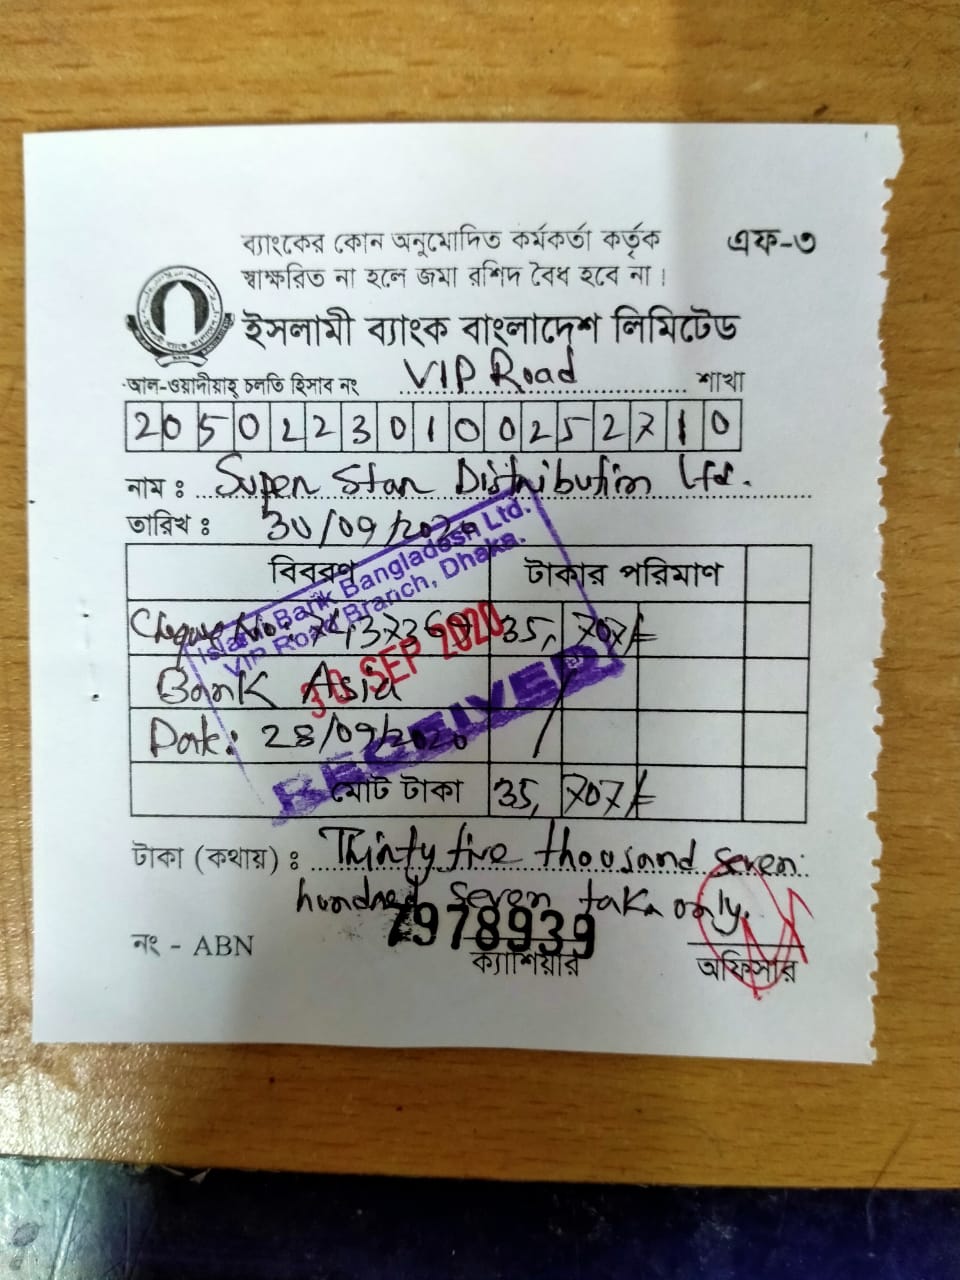 ব্যাংকের কোন অনুমোদিত কর্মকর্তা কর্তৃক
স্বাক্ষরিত না হলে জমা রশিদ বৈধ হবে না।
এফ-৩
ইসলামী ব্যাংক বাংলাদেশ লিমিটেড
আল-ওয়াদীয়াহ্ চলতি হিসাব নং VIP Road শাখা
20502230100252710
নাম : Super Star Distribution Ltd.
তারিখ : 30/09/2020
বিবরণ টাকার পরিমাণ
Cheque No: 35, 707/=
Bank Asia
Date: 28/09/2020
মোট টাকা 35, 707/=
Islami Bank Bangladesh Ltd.
VIP Road Branch, Dhaka.
30 SEP 2020
RECEIVED
টাকা (কথায়) : Thirty five thousand seven
hundred seven taka only.
নং - ABN 7978939
ক্যাশিয়ার অফিসার